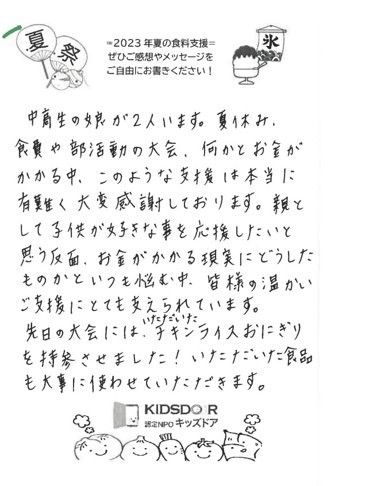 夏祭
=2023年夏の食料支援=
ぜひご感想やメッセージを
ご自由にお書きください!
氷
中高生の娘が2人います。夏休み、
食費や部活動の大会、何かとお金が
かかる中、このような支援は本当に
有難く大変感謝しております。親と
して子供が好きな事を応援したいと
思う反面、お金がかかる現実にどうした
ものかといつも悩む中、皆様の温かい
ご支援にとても支えられています。
先日の大会には、いただいたチキンライスおにぎり
を持参させました!いただいた食品
も大事に使わせていただきます。
KIDSDOOR
認定NPO キッズドア